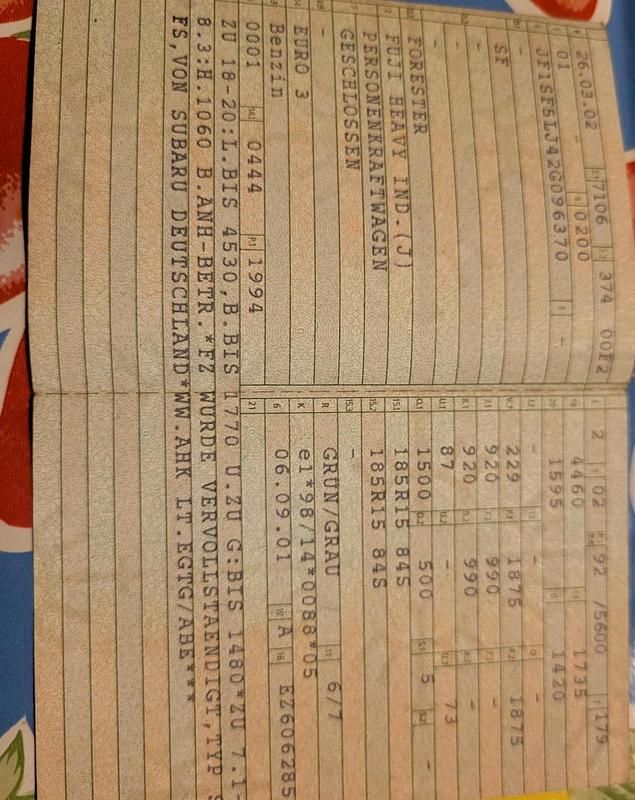 26.03.02 7106 374 00F2 2 02 92 /5600 179
01 - 0200 4460 1735
JF1SF5LJ42G096370 - 1595 1420
- - - -
SF 229 1875 1875
- 920 990 -
- 920 990 -
- 87 - 73
FORESTER 1500 500 5 -
FUJI HEAVY IND.(J) 185R15 84S
PERSONENKRAFTWAGEN 185R15 84S
GESCHLOSSEN -
- GRÜN/GRAU 6/7
EURO 3 e1*98/14*0088*05
Benzin 06.09.01 A EZ606285
0001 0444 1994
ZU 18-20:L.BIS 4530,B.BIS 1770 U.ZU G:BIS 1480*ZU 7.1-
8.3:H.1060 B.ANH-BETR.*FZ WURDE VERVOLLSTAENDIGT,TYP S
FS,VON SUBARU DEUTSCHLAND*WW.AHK LT.EGTG/ABE***